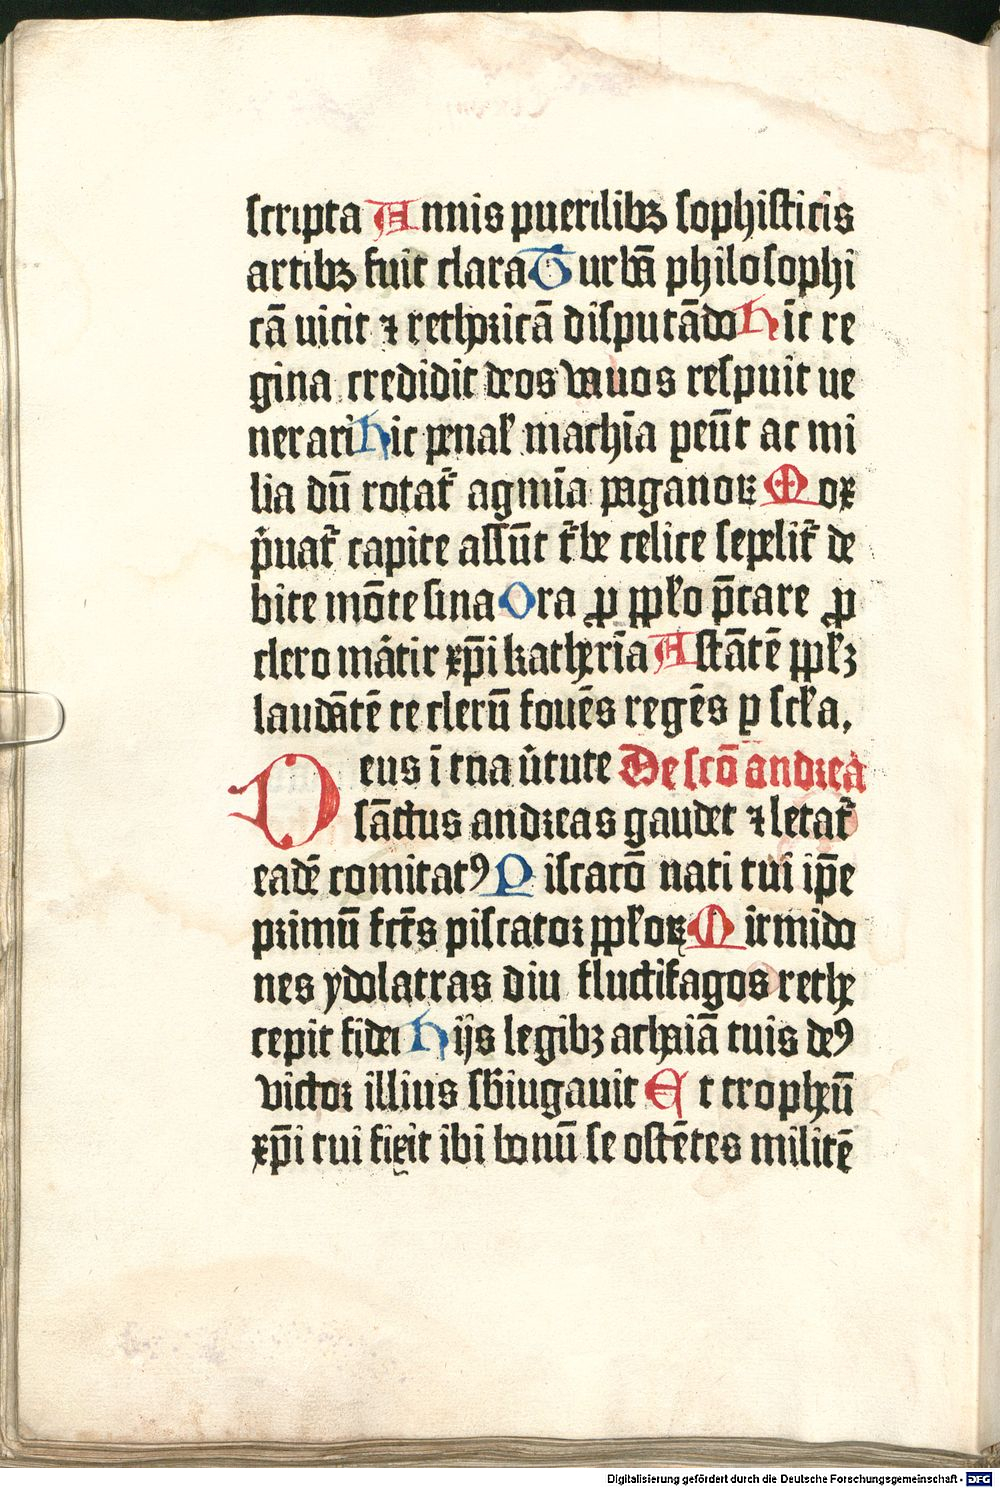 scripta Annis puerilibꝫ sophisticis
artibꝫ fuit clara Turbā philosophi
cā vicit ⁊ rethoricā disputādo Hīc re
gina credidit deos vanos respuit ve
nerari Hic penal̛ machīa peūt ac mi
lia dū rotat᷑ agmīa paganoꝝ Mox
p̄uat᷑ capite assūt t̛be celice sepelit᷑ de
bite mōte sina Ora ꝓ ppl̛o p̄care ꝓ
clero mātir xp̄i katherīa Astātē ppl̛ꝫ
laudātē te clerū fouēs regēs ꝑ scl̛a.
Deus ī tua v̛tute De scō andrea
sāctus andreas gaudet ⁊ letat᷑
eadē comitatꝰ Piscatō nati tui ip̄e
primū fct̄s piscator ppl̛oꝝ Mirmido
nes ydolatras diu fluctifagos rethe
cepit fidei Hijs legibꝫ achaiā tuis deꝰ
victor illius sb̄iugauit Et tropheū
xp̄i tui fixit ibi bonū se ostētes militē
Digitalisierung gefördert durch die Deutsche Forschungsgemeinschaft - DFG